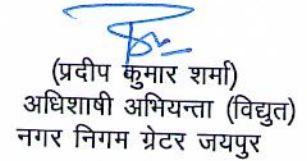 (प्रदीप कुमार शर्मा)
अधिशाषी अभियन्ता (विद्युत)
नगर निगम ग्रेटर जयपुर